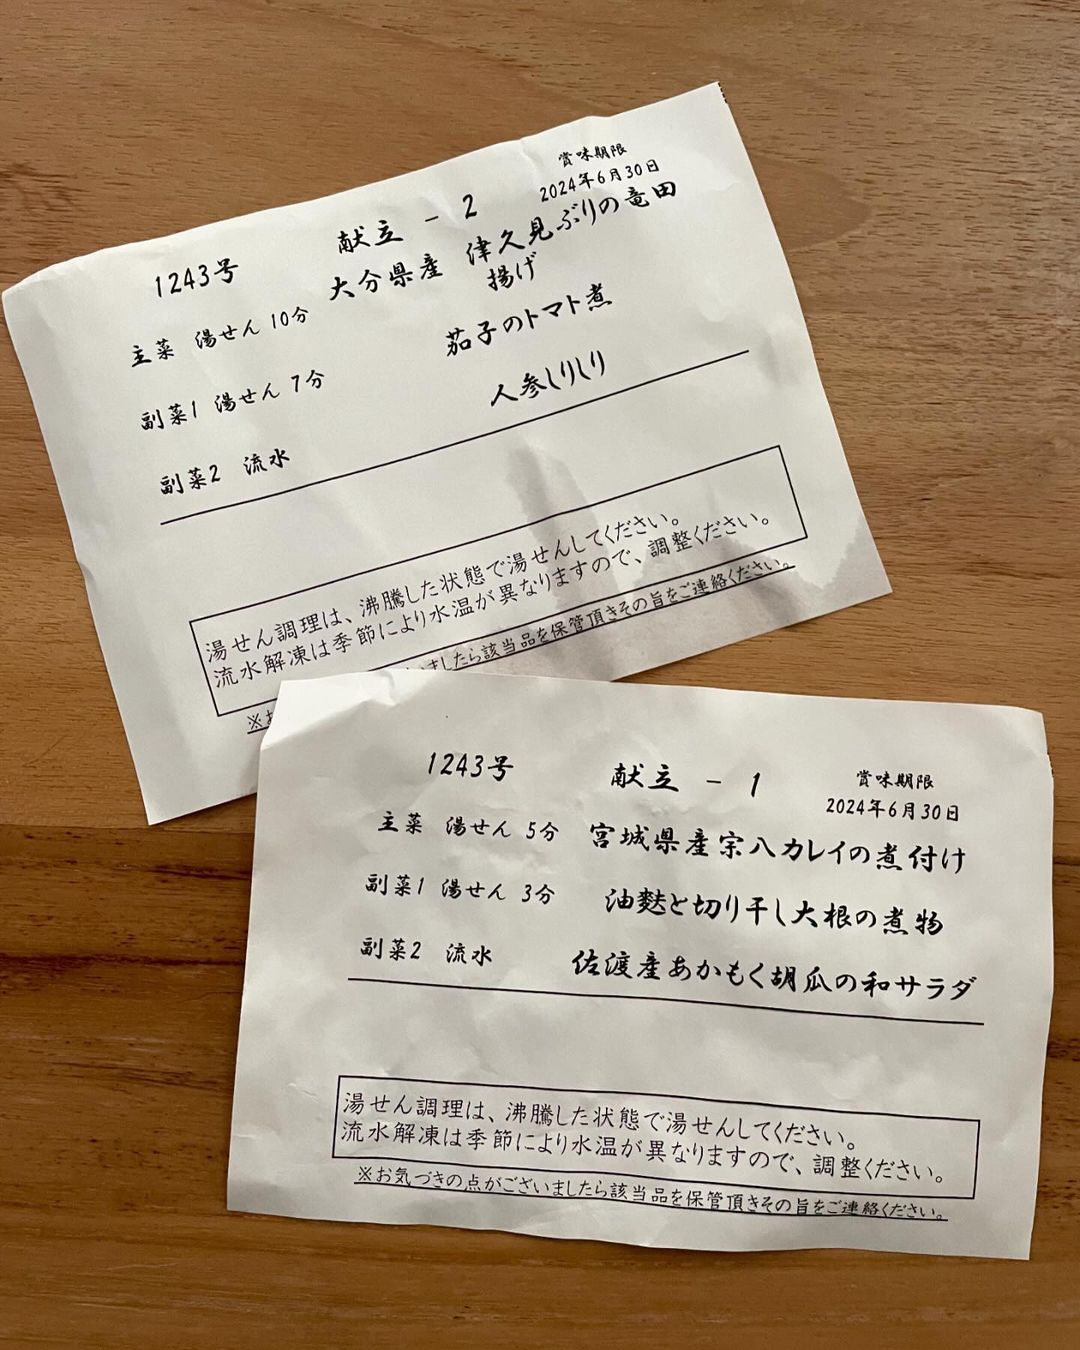 賞味期限
1243号 献立 － 2 2024年6月30日
主菜 湯せん 10分 大分県産 津久見ぶりの竜田
揚げ
副菜1 湯せん 7分 茄子のトマト煮
副菜2 流水 人参しりしり
湯せん調理は、沸騰した状態で湯せんしてください。
流水解凍は季節により水温が異なりますので、調整ください。
※お ましたら該当品を保管頂きその旨をご連絡ください。
1243号 献立 － 1 賞味期限
2024年6月30日
主菜 湯せん 5分 宮城県産宗八カレイの煮付け
副菜1 湯せん 3分 油麩と切り干し大根の煮物
副菜2 流水 佐渡産あかもく胡瓜の和サラダ
湯せん調理は、沸騰した状態で湯せんしてください。
流水解凍は季節により水温が異なりますので、調整ください。
※お気づきの点がございましたら該当品を保管頂きその旨をご連絡ください。